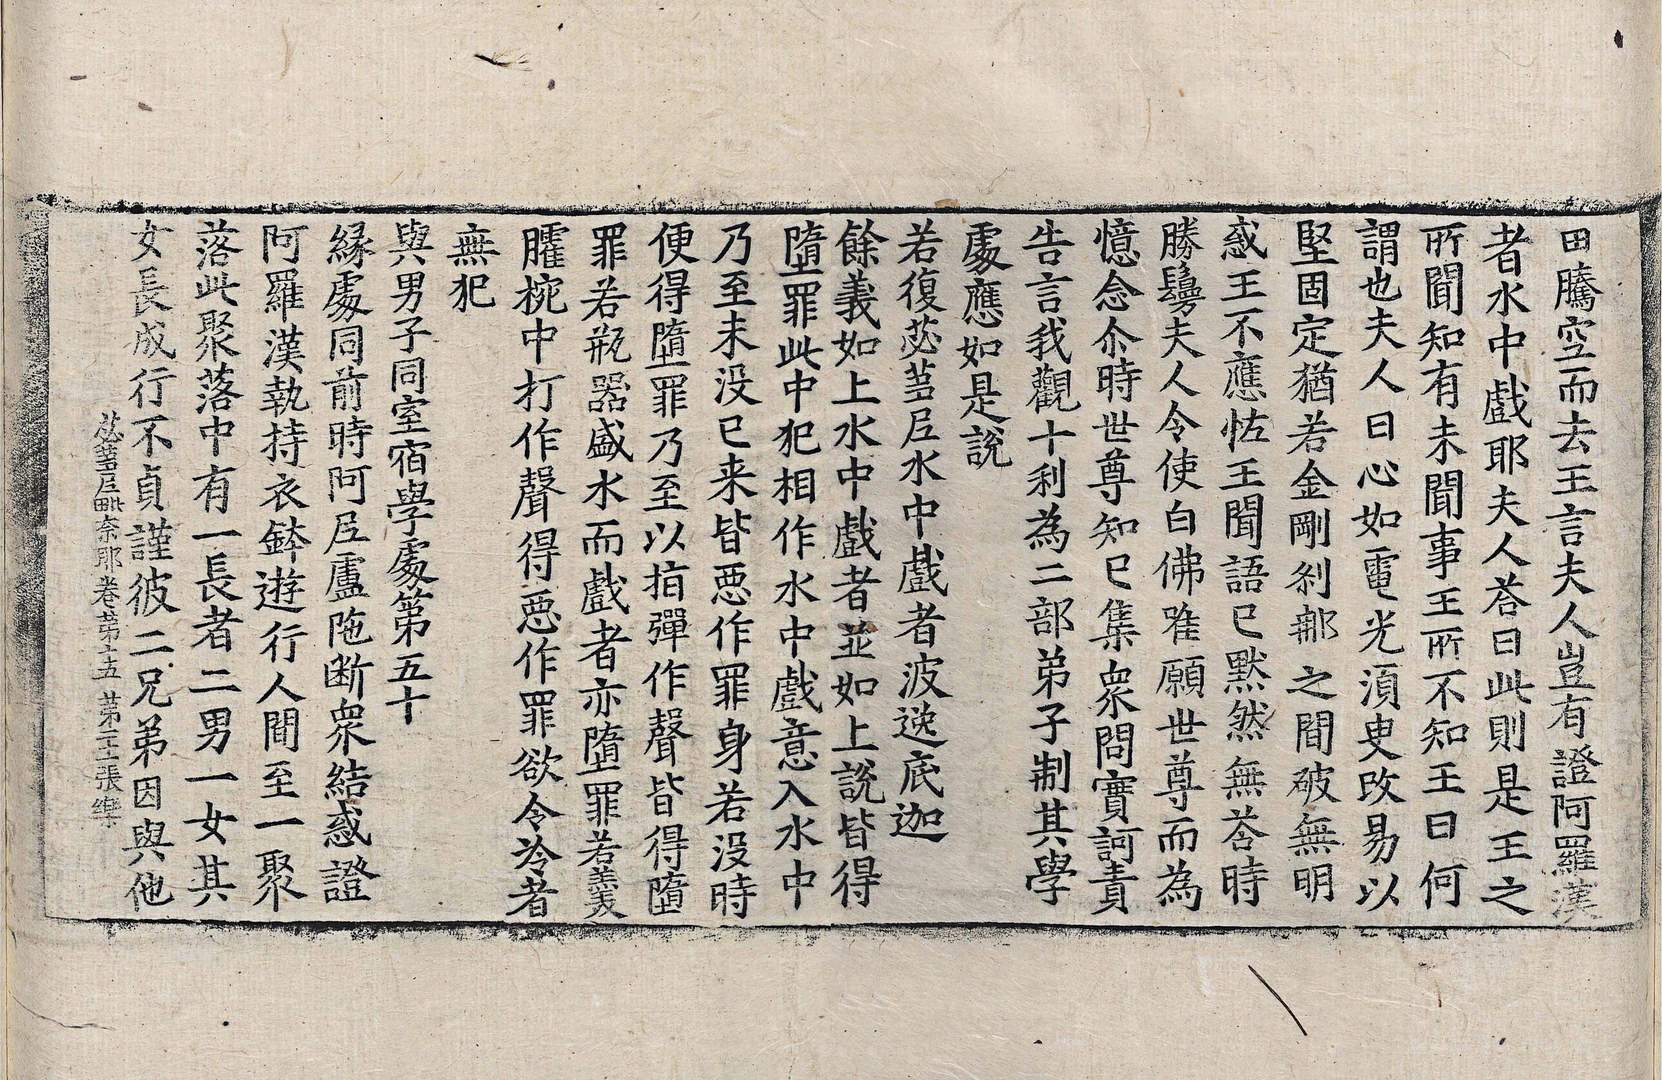 田騰空而去王言夫人豈有證阿羅漢
者水中戲耶夫人荅曰此則是王之
所聞知有未聞事王所不知王曰何
謂也夫人曰心如電光須臾改易以
堅固定猶若金剛刹那之間破無明
惑王不應怪王聞語已默然無荅時
勝鬘夫人令使白佛唯願世尊而為
憶念尒時世尊知已集衆問實訶責
告言我觀十利為二部弟子制其學
處應如是說
若復苾芻尼水中戲者波逸底迦
餘義如上水中戲者並如上說皆得
墮罪此中犯相作水中戲意入水中
乃至未没已来皆惡作罪身若没時
便得墮罪乃至以指彈作聲皆得墮
罪若瓶器盛水而戲者亦墮罪若羹
臛椀中打作聲得惡作罪欲令冷者
無犯
與男子同室宿學處第五十
縁處同前時阿尼盧陁断衆結惑證
阿羅漢執持衣鉢遊行人間至一聚
落此聚落中有一長者二男一女其
女長成行不貞謹彼二兄弟因與他
苾芻尼毗奈耶卷第十五 第二十二張 樂